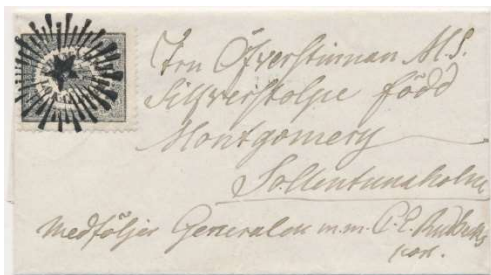 Fru Öfverstinnan M. S.
Silfverstolpe född
Montgomery
Sollentunaholm
Medföljer Generalen m.m. C. E.